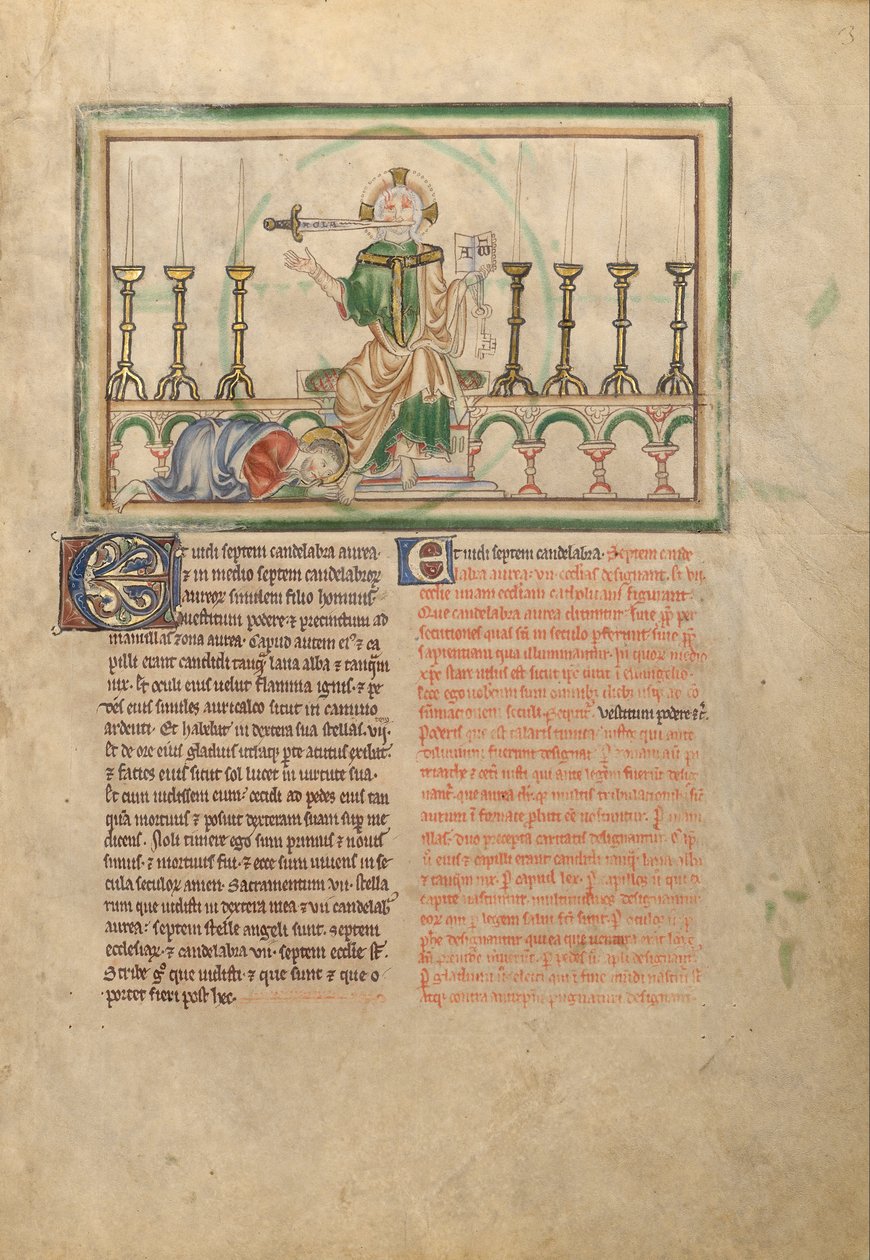 3
A ω
Et uidi septem candelabra aurea·
⁊ in medio septem candelabroꝝ
aureoꝝ similem filio hominis·
uestitum podere· ⁊ precinctum ad
mamillas zona aurea· Capud autem eiꝰ ⁊ ca
pilli erant candidi tanqͣ lana alba ⁊ tanqͣm
nix· Et oculi eius uelut flamma ignis· ⁊ pe
des eius similes auricalco sicut in camino
ardenti· Et habebat in dextera sua stellas· vii·
Et de ore eius gladius utͣqꝫ ꝑte acutus exibat·
⁊ facies eius sicut sol lucet in uirtute sua·
Et cum uidissem eum· cecidi ad pedes eius tan
quā mortuus ⁊ posuit dexteram suam suꝑ me
dicens· Noli timere ego sum primus ⁊ nouis
simus· ⁊ mortuus fui· ⁊ ecce sum uiuens in se
cula seculoꝝ amen· Sacramentum vii· stella
rum que uidisti in dextera mea ⁊ vii candelab̄
aurea· septem stelle angeli sunt· septem
ecclesiaꝝ· ⁊ candelabra vii· septem ecclie st̄·
Scribe gͦ que uidisti· ⁊ que sunt ⁊ que o
portet fieri post hec·
Et uidi septem candelabra· Septem cande
labra aurea· vii· ecclias designant· si vii·
ecclie unam eccliam catholicam figurant·
Que candelabra aurea dicuntur siue ꝓpꝉ per
secutiones quas in seculo ꝑferunt siue
sapientiam qua illuminantur· In quoꝝ medio
xp̄c stare uisus est sicut ipē dicit ī euangelio·
Ecce ego uobiscum sum omnibꝫ diebꝫ usqꝫ ad cō
sūmationem seculi· Sequitͬ· Vestitum podere ⁊c̄·
Poderis que est talaris tunica iusti qui ante
diluuium fuerunt designatͬ· zonam
triarche ⁊ cet̄i iusti qui ante legem fuerūt desig
nantͬ· que aurea multis tribulationibꝫ
aurum ī fornace
illas· duo precepta caritatis designantur·
eius ⁊ capilli erant candidi tanqͣ lana alba
⁊ tanqͣm nix· ꝑ capud lex· ꝑ capillos qui ex
capite nascuntur· multitudines designantur
eoꝝ qui ꝑ legem salui fc̄i sunt· ꝑ oculos
ꝓph̄e designantur qui ea que uentura
ꝑ pedes apl̄i designantͬ·
ꝑ gladium electi qui ī fine mundi
atqꝫ contra pugnaturi designantͬ